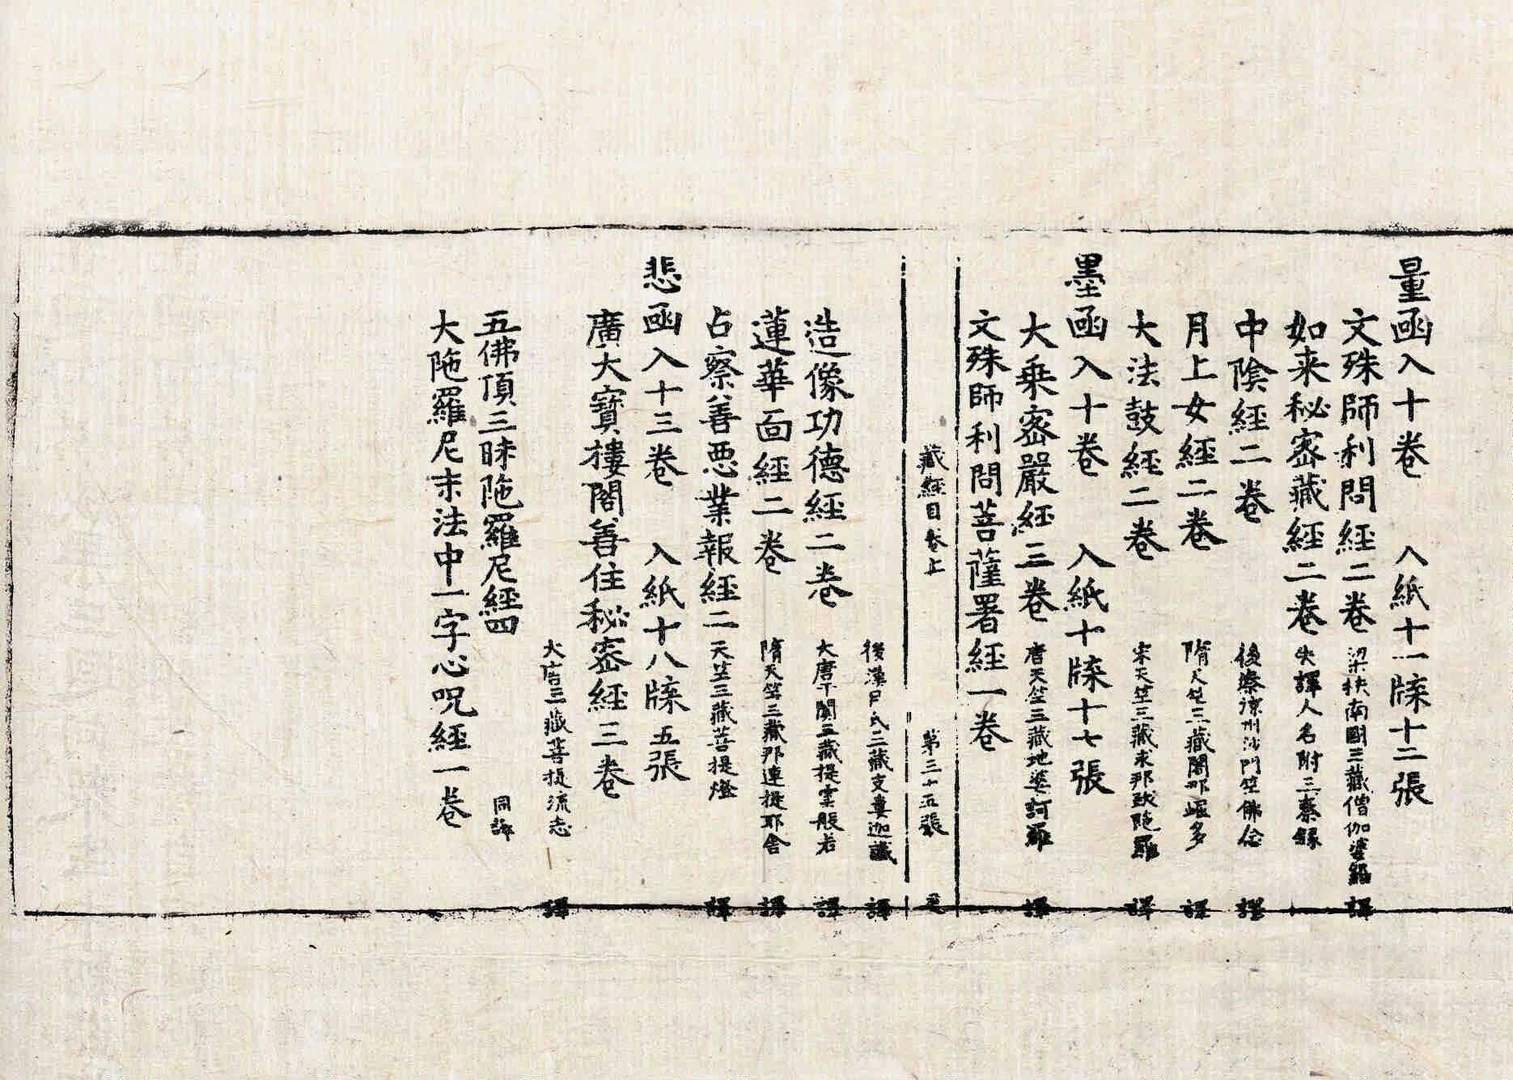 量函入十卷 入紙十一牒十二張
文殊師利問經二卷 梁扶南國三藏僧伽婆羅 譯
如来秘密藏經二卷 失譯人名附三秦録
中陰經二卷 後秦涼州沙門竺佛念 譯
月上女經二卷 隋天竺三藏闍那崛多 譯
大法鼓經二卷 宋天竺三藏求那跋陀羅 譯
墨函入十卷 入紙十牒十七張
大乗密嚴經三卷 唐天竺三藏地婆訶羅 譯
文殊師利問菩薩署經一卷
藏經目卷上 第三十五張
後漢月氏三藏支婁迦讖 譯
造像功德經二卷 大唐于闐三藏提雲般若 譯
蓮華面經二卷 隋天竺三藏那連提耶舍 譯
占察善悪業報經二 天竺三藏菩提燈 譯
悲函入十三卷 入紙十八牒五張
廣大寶樓閣善住秘密經三卷
大唐三藏菩提流志 譯
五佛頂三昧陁羅尼經四 同譯
大陁羅尼末法中一字心呪經一卷